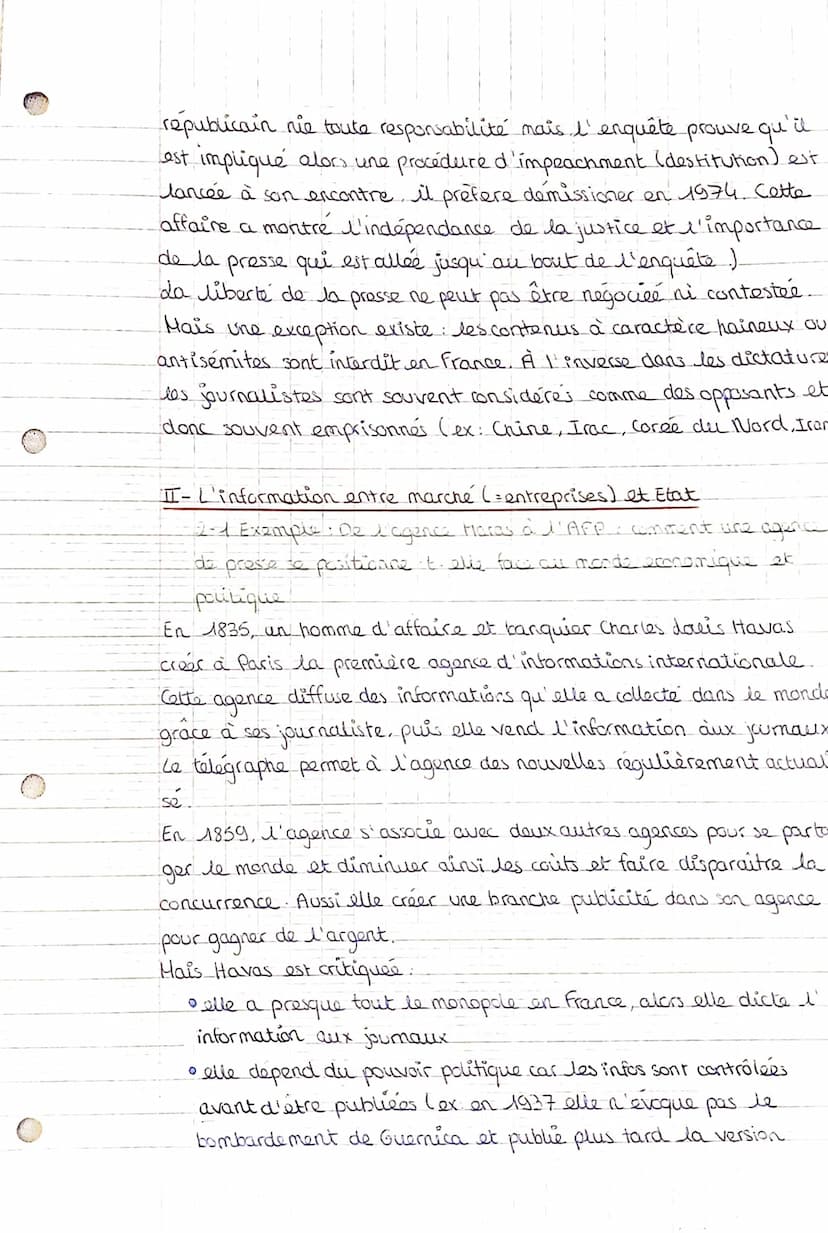 républicain nie toute responsabilité mais l'enquête prouve qu'il
est impliqué alors une procédure d'impeachment (destitution) est
lancée à son encontre, il préfere démissioner en 1974. Cette
affaire a montré l'indépendance de la justice et l'importance
de la presse qui est allée jusqu'au bout de l'enquête.)
La liberté de la presse ne peut pas être négociéé ni contestée.
Mais une exception existe : les contenus à caractère haineux ou
antisémites sont interdit en France. À l'inverse dans les dictature
les journalistes sont souvent considérés comme des opposants et
donc souvent emprisonnés (ex : Chine, Irac, Corée du Nord, Iran
II- L'information entre marché (=entreprises) et Etat
2-1 Exemple : De l'agence Havas à l'AFP : comment une agence
de presse se positionne-t-elle face au monde economique et
politique
En 1835, un homme d'affaire et banquier Charles Louis Havas
créer à Paris la première agence d'informations internationale.
Cette agence diffuse des informations qu'elle a collecté dans le monde
grâce à ses journaliste, puis elle vend l'information aux journaux
Le télégraphe permet à l'agence des nouvelles régulièrement actuali
sé.
En 1859, l'agence s'associe avec deux autres agences pour se parta
ger le monde et diminuer ainsi les coûts et faire disparaitre la
concurrence. Aussi elle créer une branche publicité dans son agence
pour gagner de l'argent.
Mais Havas est critiquée :
• elle a presque tout le monopole en France, alors elle dicte l'
information aux journaux
• elle dépend du pouvoir politique car les infos sont contrôlées
avant d'être publiées (ex en 1937 elle n'évoque pas le
bombardement de Guernica et publie plus tard la version